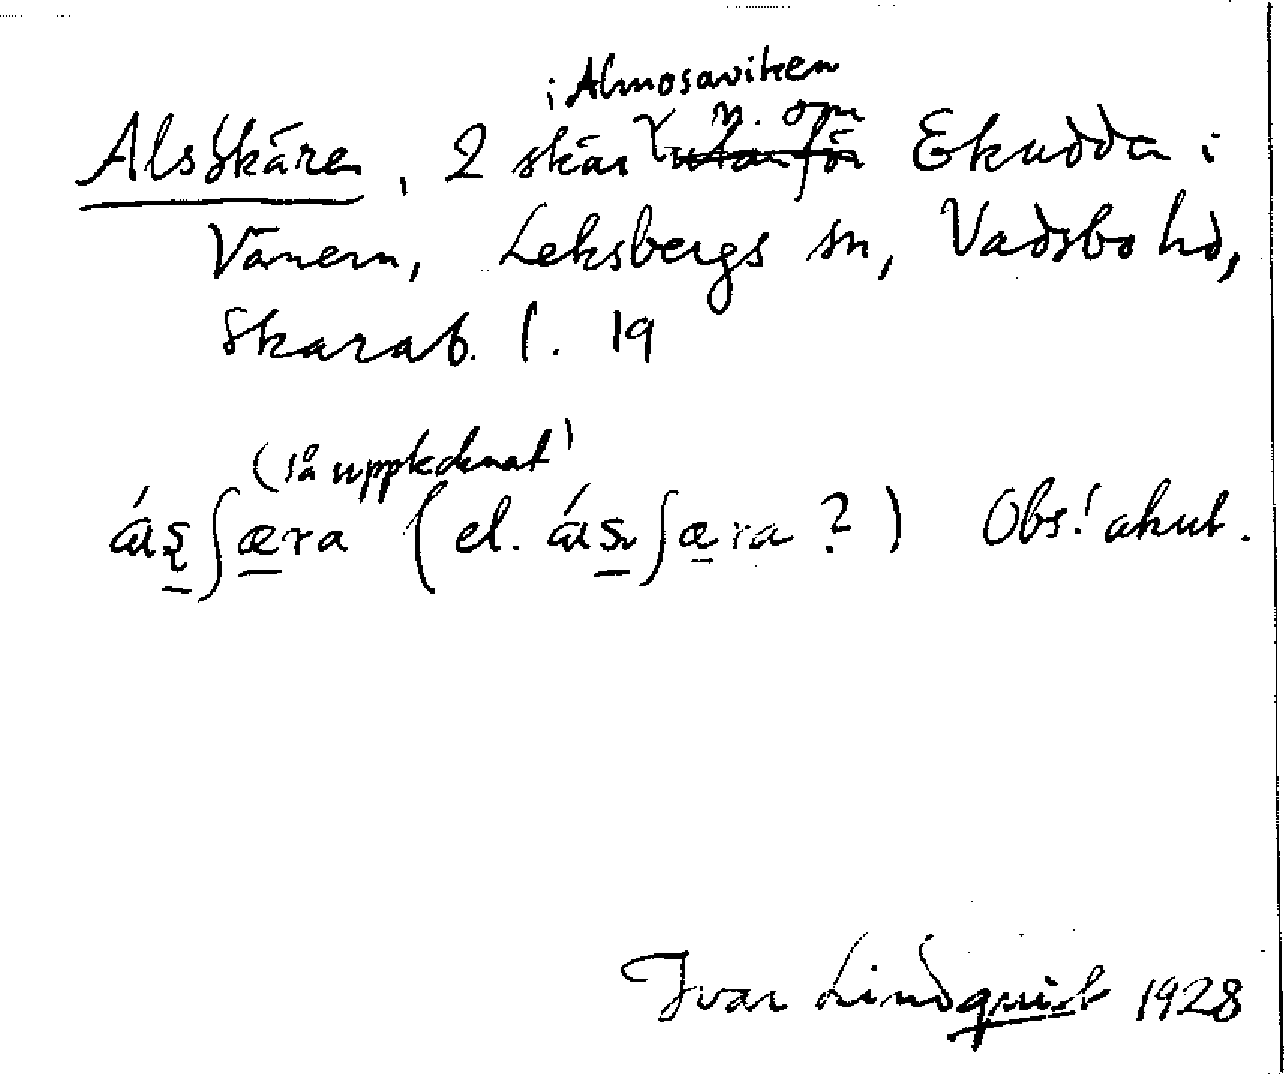 i Almosaviken
n. om
Alsskären, 2 skär utanför Ekudda i
Vänern, Leksbergs sn, Vadsbo hd,
Skarab. l. 19
(så uppteknat)
áʂʃæra (el. áʂʃæra?) Obs! akut.
Ivar Lindquist 1928